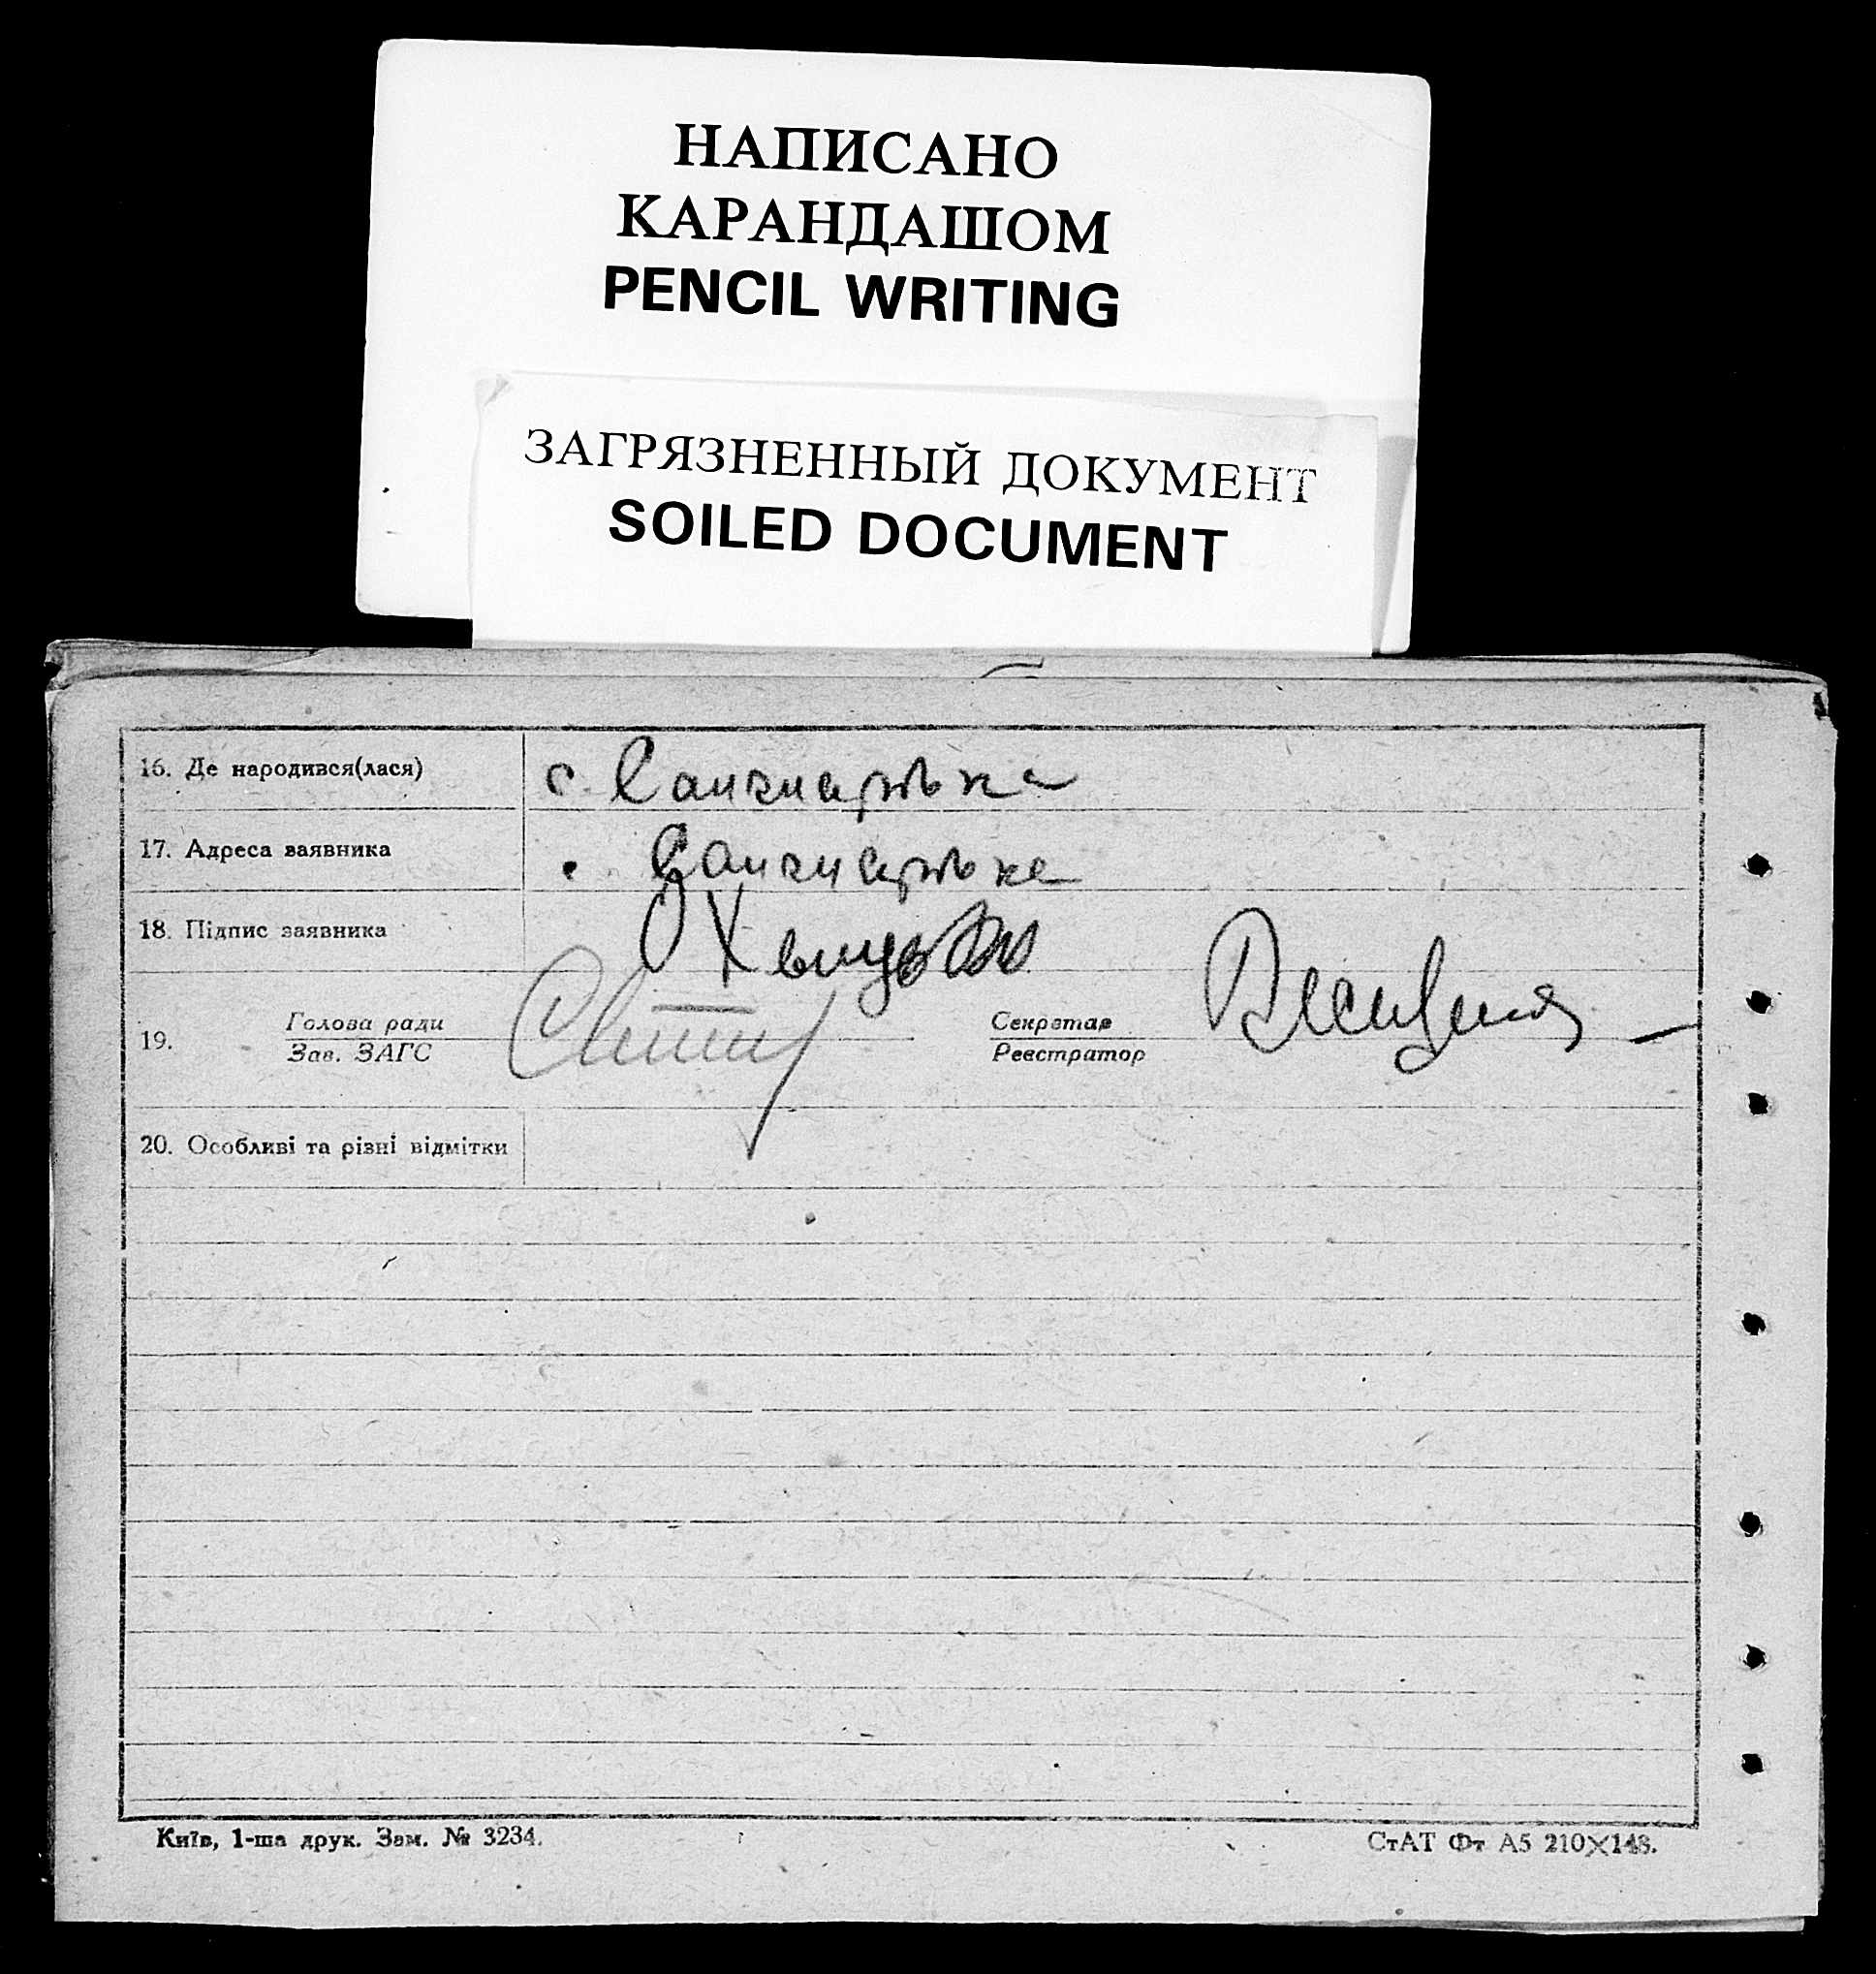 НАПИСАНО
КАРАНДАШОМ
PENCIL WRITING
ЗАГРЯЗНЕННЫЙ ДОКУМЕНТ
SOILED DOCUMENT
16. Де народився(лася) с.
17. Адреса заявника
18. Підпис заявника
19. Голова ради
Зав. ЗАГС
Секретар
Реєстратор
20. Особливі та різні відмітки
Київ, 1-ша друк. Зам. № 3234.
СтАТ Фт А5 210×148.